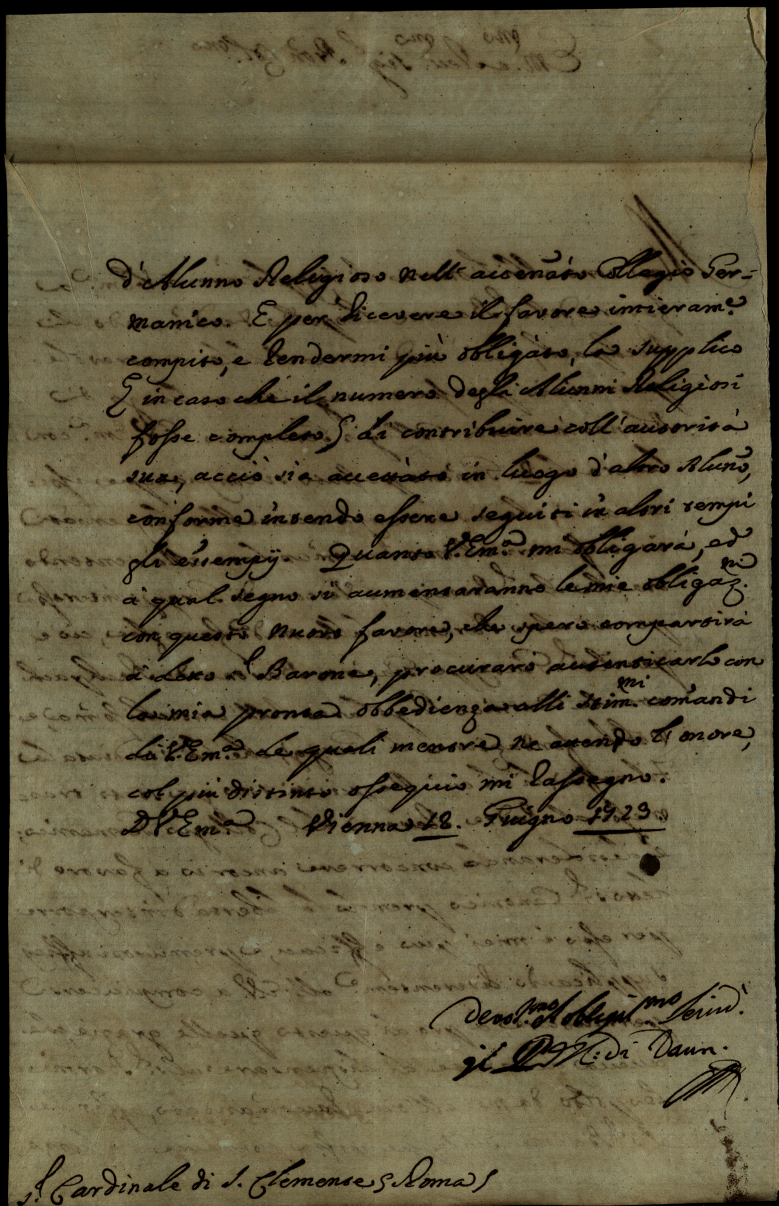 d'Alunno Religioso nell'accenato Collegio Ger=
manico. E per ricevere il favore intieram.e
compito, e rendermi più obligato, la supplico
( in caso che il numero degli Alunni Religiosi
fosse completo ) di contribuire coll'autorità
sua, acciò sia accettato in luogo d'altro Aluño,
conforme intendo essere seguiti in altri tempi
gli essempij. Quanto V. Em.a mi obligarà, ed
à qual segno si aumentaranno le mie obligaz.ni
con questo nuovo favore, che spero compartirà
à detto S.r Barone, procurarò autenticarlo con
la mia pronta obbedienza alli stim.mi comandi
di V. Em.a de quali mentre ne attendo l'onore,
col più distinto ossequio mi rassegno.
D. V. Em.a Vienna 18. Giugno 1723
devot.mo obligat.mo Seru.r
il di Daun.
S.r Cardinale di S. Clemente ( Roma )